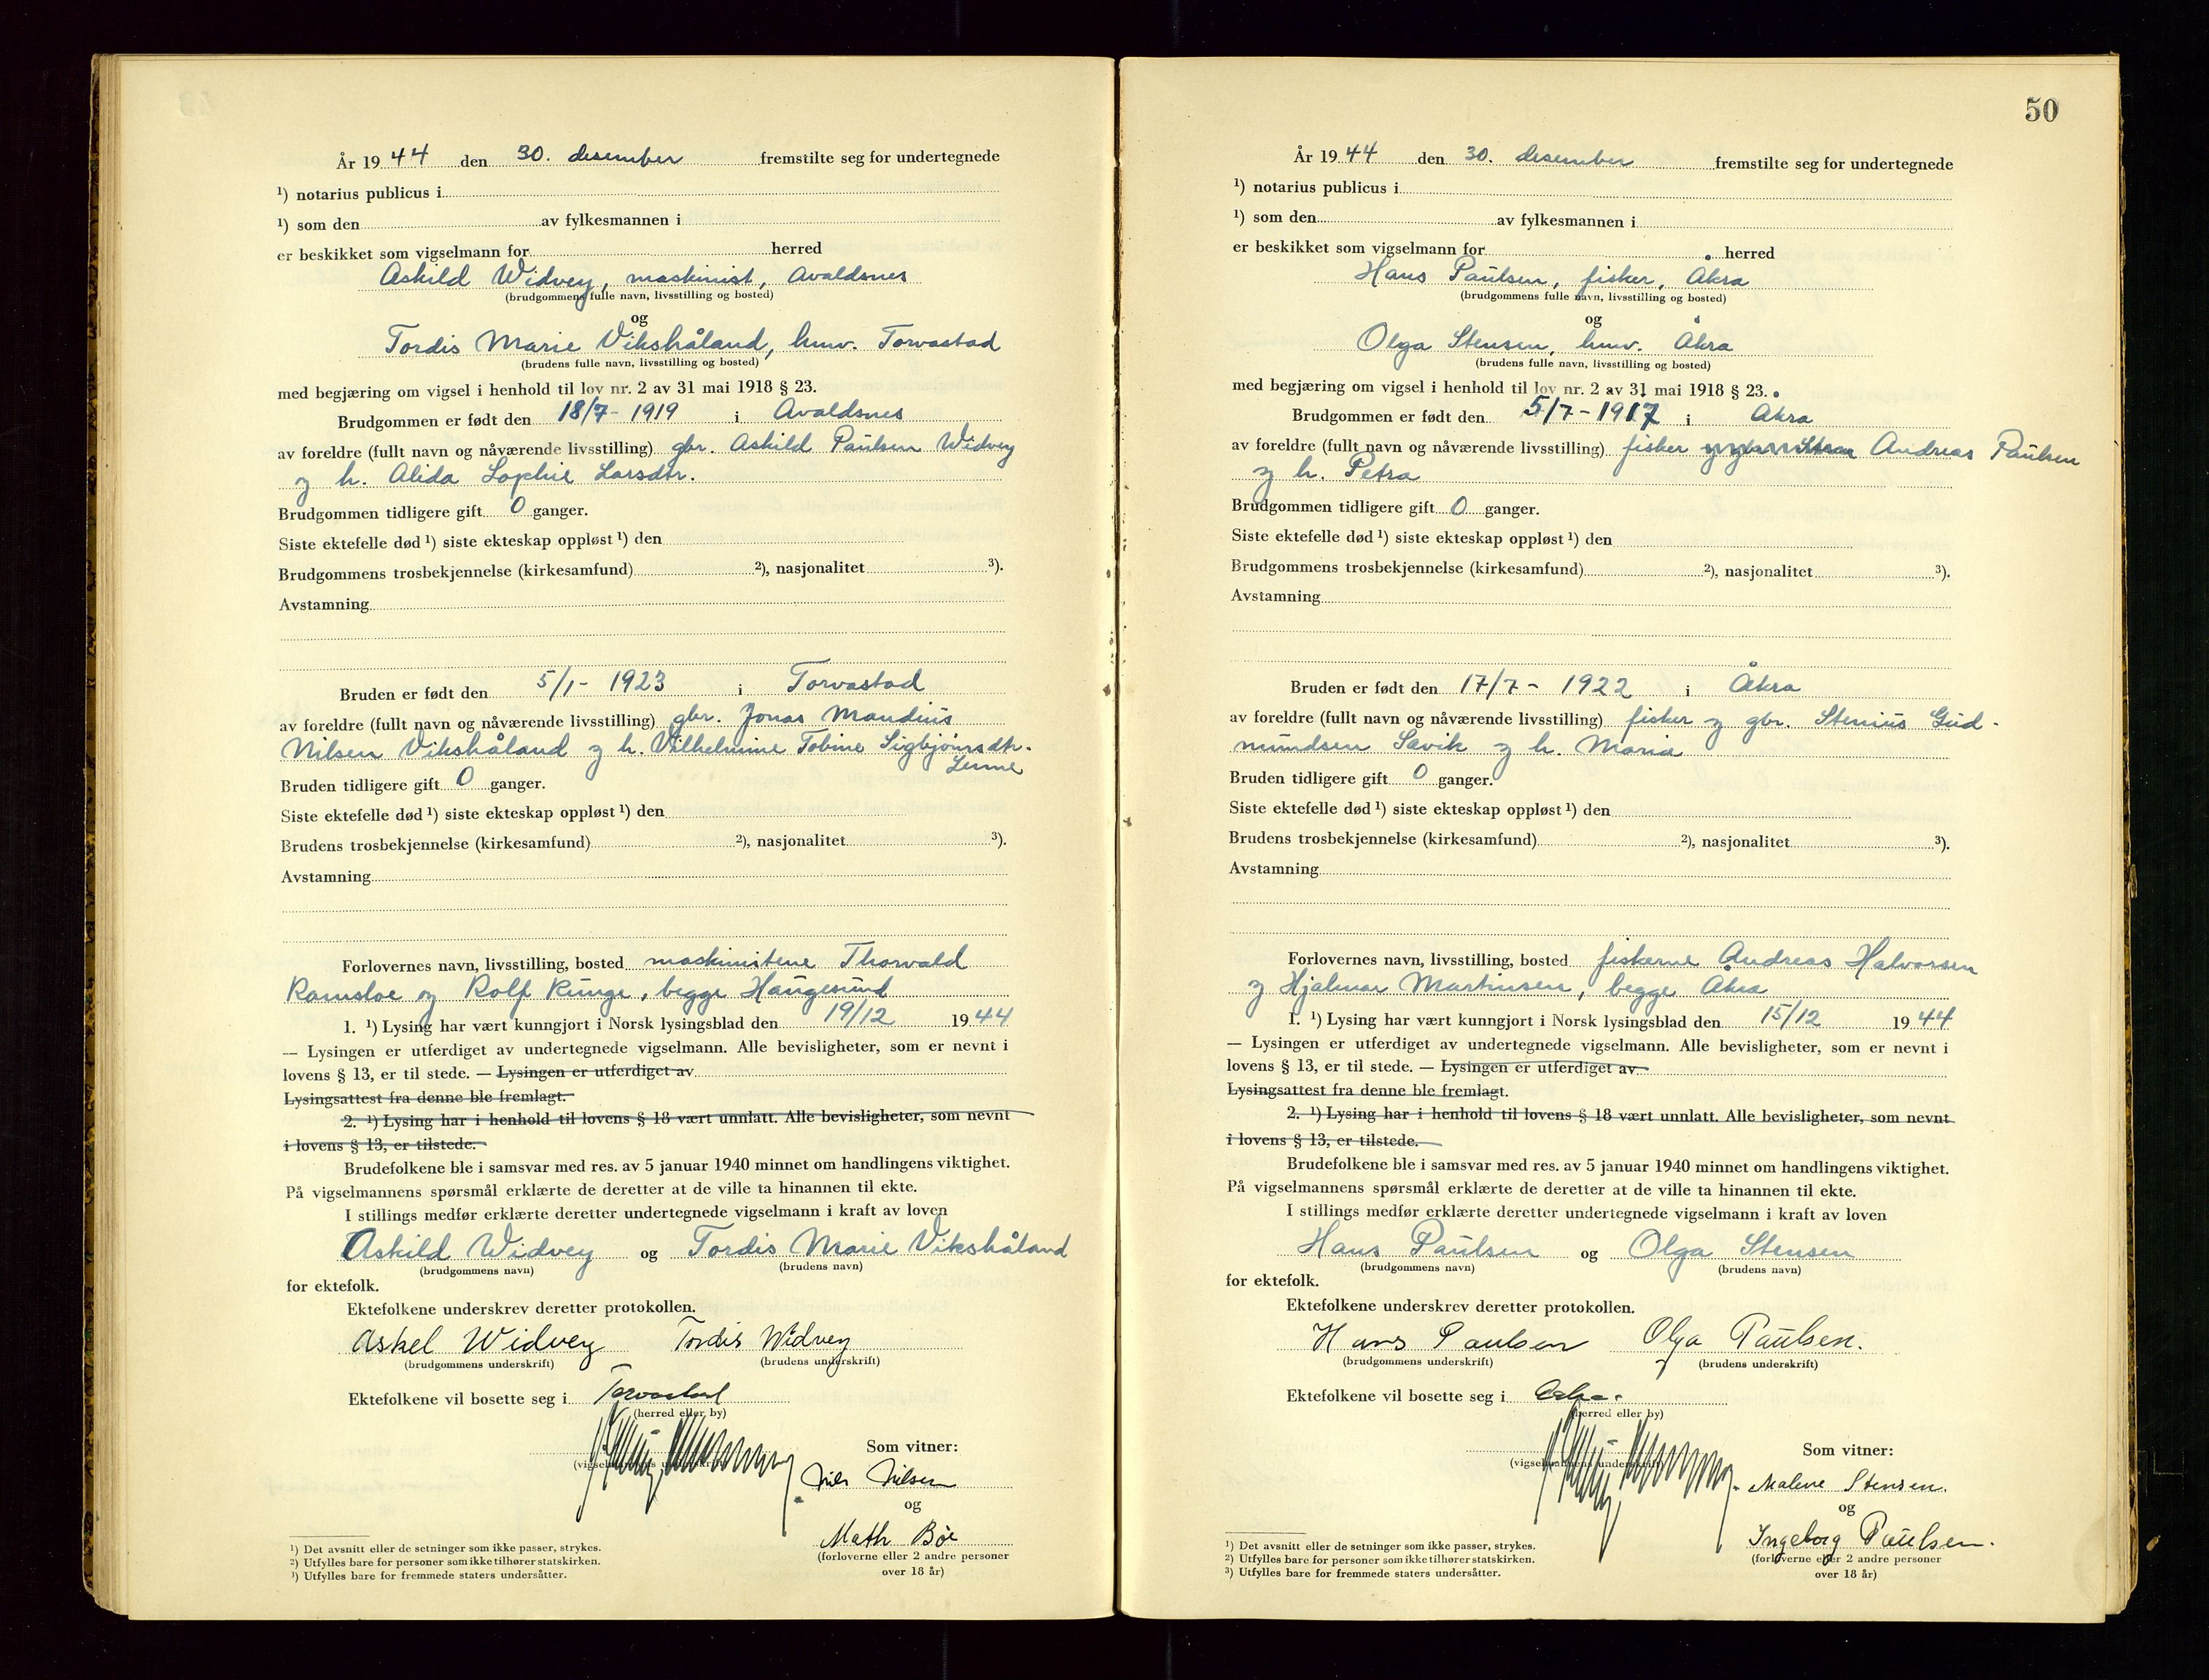 År 19 44 den 30. desember fremstilte seg for undertegnede
¹) notarius publicus i
¹) som den av fylkesmannen i
er beskikket som vigselmann for herred
Askild Widvey, maskinist, Avaldsnes
(brudgommens fulle navn, livsstilling og bosted)
og
Tordis Marie Vikshåland, hmv. Torvastad
(brudens fulle navn, livsstilling og bosted)
med begjæring om vigsel i henhold til lov nr. 2 av 31 mai 1918 § 23.
Brudgommen er født den 18/7 - 1919 i Avaldsnes
av foreldre (fullt navn og nåværende livsstilling) gbr. Askild Paulsen Widvey
og h. Alida Sophie Larsdtr.
Brudgommen tidligere gift 0 ganger.
Siste ektefelle død ¹) siste ekteskap oppløst ¹) den
Brudgommens trosbekjennelse (kirkesamfund) ²), nasjonalitet ³).
Avstamning
Bruden er født den 5/1 - 1923 i Torvastad
av foreldre (fullt navn og nåværende livsstilling) gbr. Jonas Mandius
Nilsen Vikshåland og h. Vilhelmine Tobine Sigbjørnsdtr.
Bruden tidligere gift 0 ganger.
Siste ektefelle død ¹) siste ekteskap oppløst ¹) den
Brudens trosbekjennelse (kirkesamfund) ²), nasjonalitet ³).
Avstamning
Forlovernes navn, livsstilling, bosted maskinistene Thorvald
Ramsloe og Rolf Runge, begge Haugesund
1. ¹) Lysing har vært kunngjort i Norsk lysingsblad den 19/12 19 44
— Lysingen er utferdiget av undertegnede vigselmann. Alle bevisligheter, som er nevnt i
lovens § 13, er til stede. — Lysingen er utferdiget av
Lysingsattest fra denne ble fremlagt.
2. ¹) Lysing har i henhold til lovens § 18 vært unnlatt. Alle bevisligheter, som nevnt
i lovens § 13, er tilstede.
Brudefolkene ble i samsvar med res. av 5 januar 1940 minnet om handlingens viktighet.
På vigselmannens spørsmål erklærte de deretter at de ville ta hinannen til ekte.
I stillings medfør erklærte deretter undertegnede vigselmann i kraft av loven
Askild Widvey og Tordis Marie Vikshåland
(brudgommens navn) (brudens navn)
for ektefolk.
Ektefolkene underskrev deretter protokollen.
Askel Widvey Tordis Widvey
(brudgommens underskrift) (brudens underskrift)
Ektefolkene vil bosette seg i Torvastad
(herred eller by)
Som vitner:
(vigselmannens underskrift)
Nils Nilsen
og
Math Bøe
(forloverne eller 2 andre personer
over 18 år)
¹) Det avsnitt eller de setninger som ikke passer, strykes.
²) Utfylles bare for personer som ikke tilhører statskirken.
³) Utfylles bare for fremmede staters undersåtter.
50
År 19 44 den 30. desember fremstilte seg for undertegnede
¹) notarius publicus i
¹) som den av fylkesmannen i
er beskikket som vigselmann for herred
Hans Paulsen, fisker, Åkra
(brudgommens fulle navn, livsstilling og bosted)
og
Olga Stensen, hmv. Åkra
(brudens fulle navn, livsstilling og bosted)
med begjæring om vigsel i henhold til lov nr. 2 av 31 mai 1918 § 23.
Brudgommen er født den 5/7 - 1917 i Åkra
av foreldre (fullt navn og nåværende livsstilling) fisker Andreas Paulsen
og h. Petra
Brudgommen tidligere gift 0 ganger.
Siste ektefelle død ¹) siste ekteskap oppløst ¹) den
Brudgommens trosbekjennelse (kirkesamfund) ²), nasjonalitet ³).
Avstamning
Bruden er født den 17/7 - 1922 i Åkra
av foreldre (fullt navn og nåværende livsstilling) fisker og gbr. Stenius Gud-
mundsen Sævik og h. Maria
Bruden tidligere gift 0 ganger.
Siste ektefelle død ¹) siste ekteskap oppløst ¹) den
Brudens trosbekjennelse (kirkesamfund) ²), nasjonalitet ³).
Avstamning
Forlovernes navn, livsstilling, bosted fiskerne Andreas Halvorsen
og Hjalmar Martinsen, begge Åkra
1. ¹) Lysing har vært kunngjort i Norsk lysingsblad den 15/12 19 44
— Lysingen er utferdiget av undertegnede vigselmann. Alle bevisligheter, som er nevnt i
lovens § 13, er til stede. — Lysingen er utferdiget av
Lysingsattest fra denne ble fremlagt.
2. ¹) Lysing har i henhold til lovens § 18 vært unnlatt. Alle bevisligheter, som nevnt
i lovens § 13, er tilstede.
Brudefolkene ble i samsvar med res. av 5 januar 1940 minnet om handlingens viktighet.
På vigselmannens spørsmål erklærte de deretter at de ville ta hinannen til ekte.
I stillings medfør erklærte deretter undertegnede vigselmann i kraft av loven
Hans Paulsen og Olga Stensen
(brudgommens navn) (brudens navn)
for ektefolk.
Ektefolkene underskrev deretter protokollen.
Hans Paulsen Olga Paulsen.
(brudgommens underskrift) (brudens underskrift)
Ektefolkene vil bosette seg i Åkra.
(herred eller by)
Som vitner:
(vigselmannens underskrift)
Malene Stensen.
og
Ingeborg Paulsen.
(forloverne eller 2 andre personer
over 18 år)
¹) Det avsnitt eller de setninger som ikke passer, strykes.
²) Utfylles bare for personer som ikke tilhører statskirken.
³) Utfylles bare for fremmede staters undersåtter.